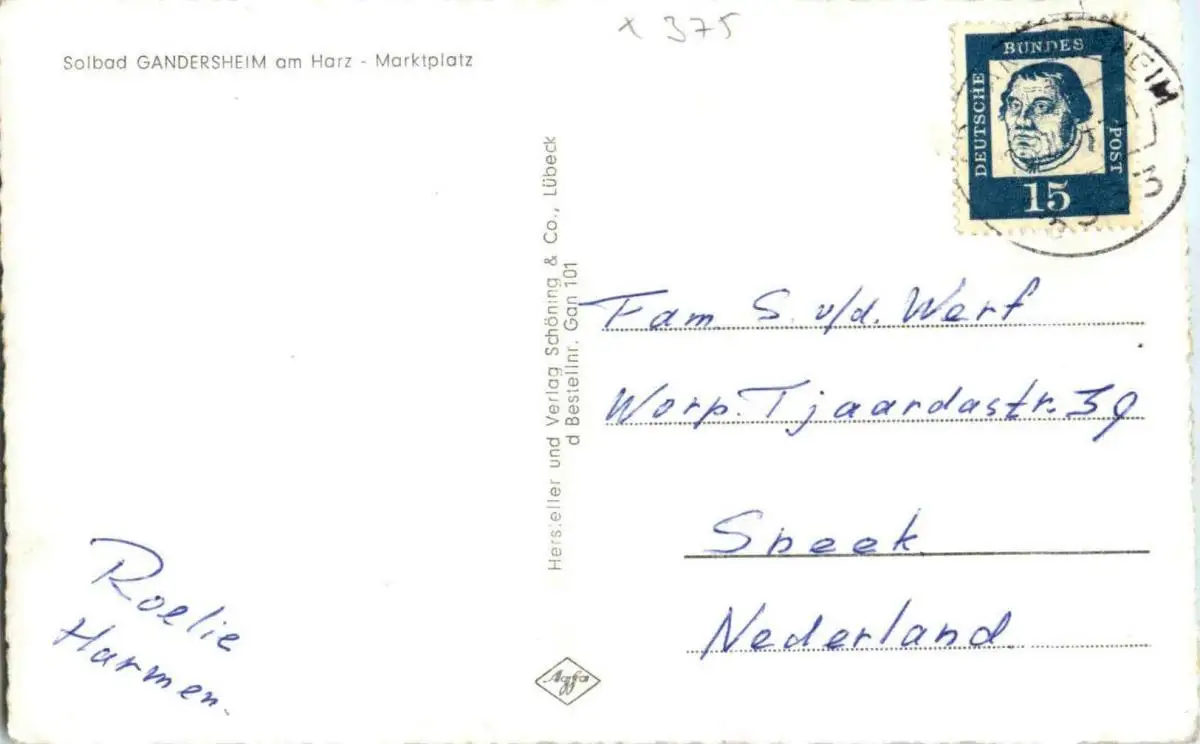 x 375
Solbad GANDERSHEIM am Harz - Marktplatz
DEUTSCHE BUNDES POST
15
Hersteller und Verlag Schöning & Co., Lübeck
d Bestellnr. Gan 101
Fam S. v/d. Werf
Worp. Tjaardastr. 39
Sneek
Nederland.
Roelie
Harmen.
Agfa